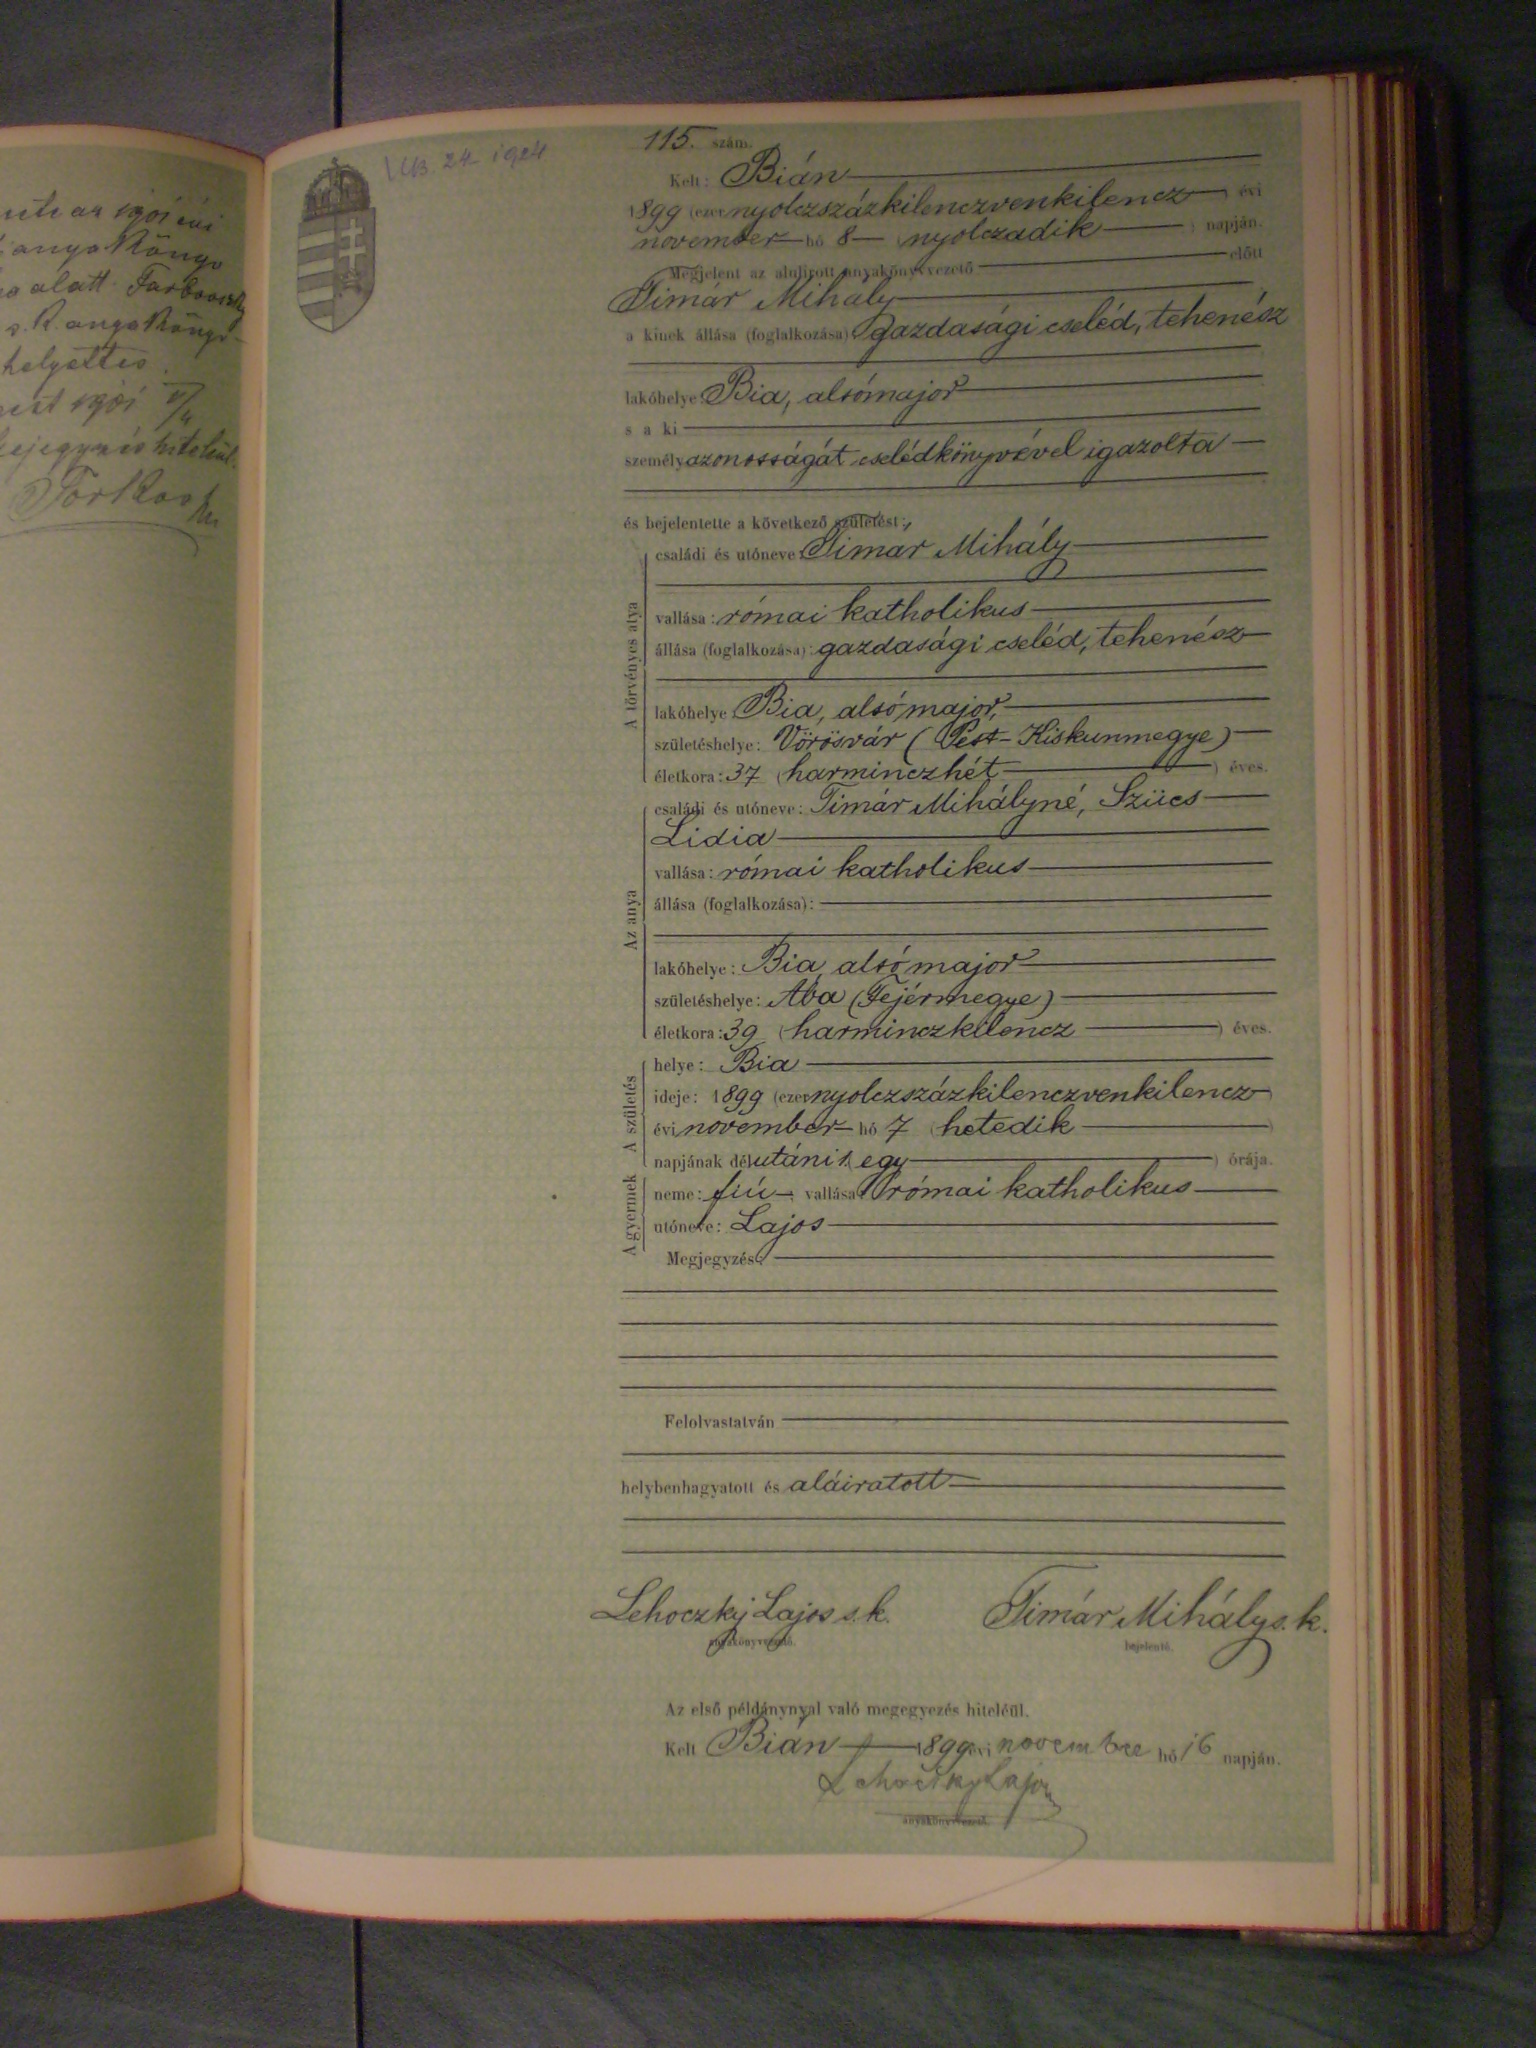 anyaköny
alatt
s. k. anyaköny-
helyettes.
115. szám.
Kelt: Bián
1899 (ezer nyolczszázkilenczvenkilencz) évi
november hó 8 (nyolczadik) napján.
Megjelent az alulírott anyakönyvvezető előtt
Timár Mihály
a kinek állása (foglalkozása) gazdasági cseléd, tehenész
lakóhelye Bia, alsómajor
s a ki
személyazonosságát cselédkönyvével igazolta
és bejelentette a következő születést:
A törvényes atya
családi és utóneve: Timár Mihály
vallása: római katholikus
állása (foglalkozása): gazdasági cseléd, tehenész
lakóhelye Bia, alsómajor,
születéshelye: Vörösvár (Pest-Kiskunmegye)
életkora: 37 (harminczhét) éves.
Az anya
családi és utóneve: Timár Mihályné, Szücs
Lidia
vallása: római katholikus
állása (foglalkozása):
lakóhelye: Bia, alsómajor
születéshelye: Aba (Fejérmegye)
életkora: 39 (harminczkilencz) éves.
A születés
helye: Bia
ideje: 1899 (ezer nyolczszázkilenczvenkilencz)
évi november hó 7 (hetedik)
napjának délutáni 1 (egy) órája.
A gyermek
neme: fiú; vallása: római katholikus
utóneve: Lajos
Megjegyzés:
Felolvastatván
helybenhagyatott és aláiratott
Lehoczky Lajos s. k. Timár Mihály s. k.
anyakönyvvezető. bejelentő.
Az első példánynyal való megegyezés hiteléül.
Kelt Bián 1899 évi november hó 16 napján.
Lehoczky Lajos
anyakönyvvezető.